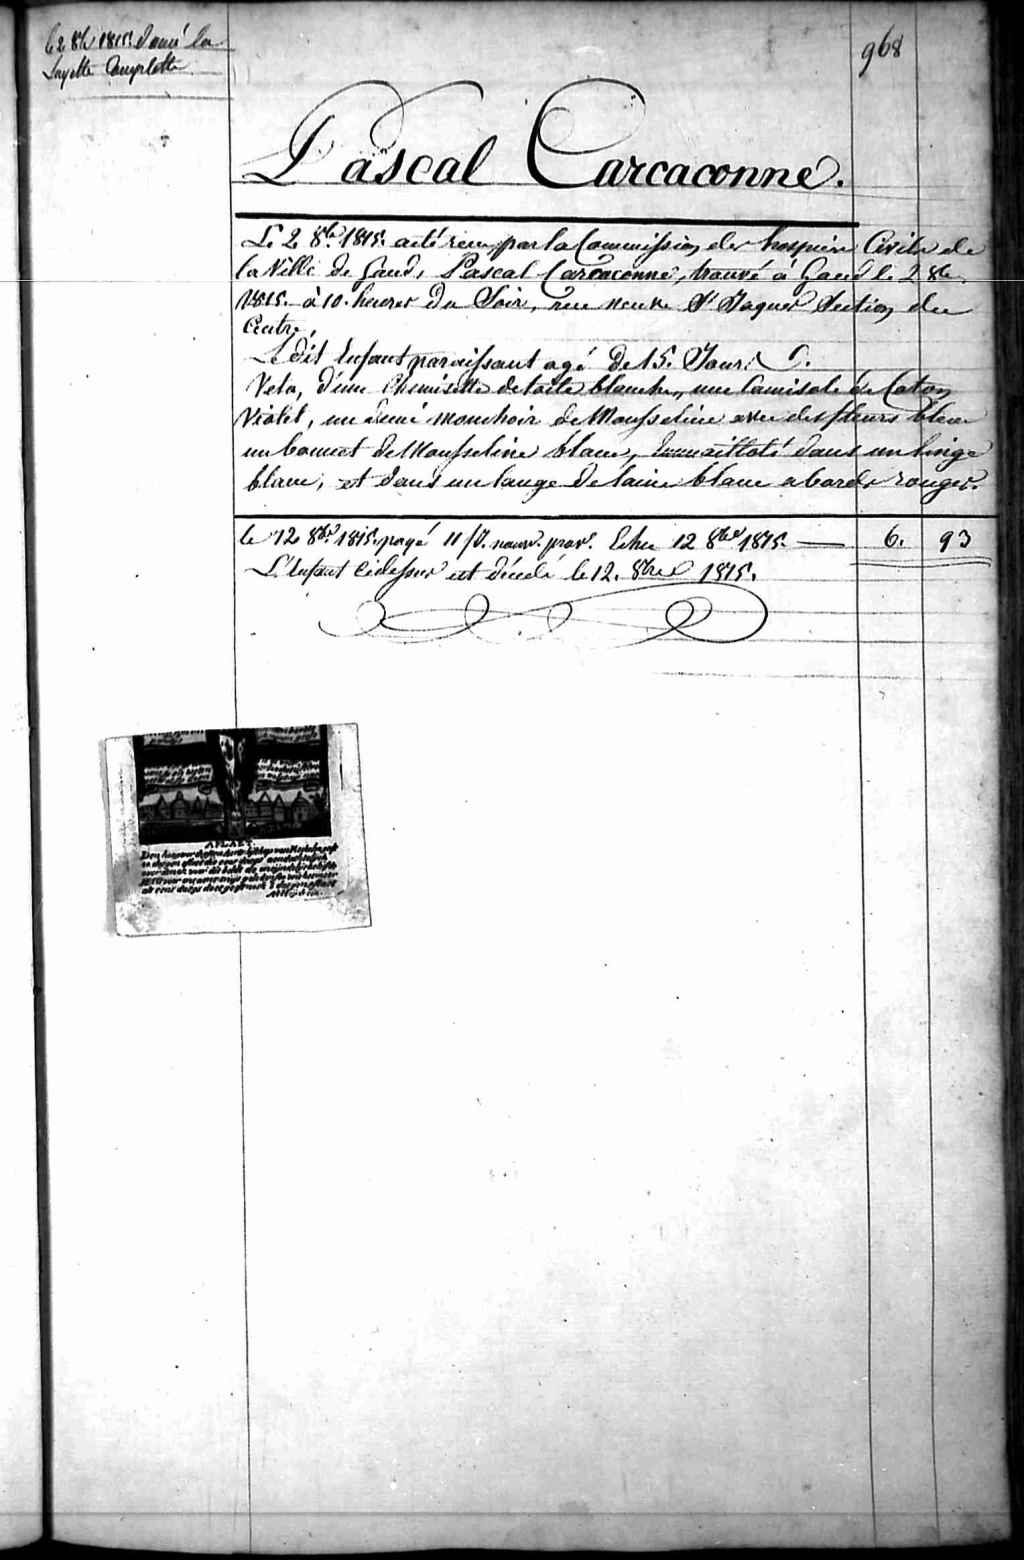 Le 2 8bre 1815. donné la
Layette Complette
968
Pascal Carcaconne.
Le 2 8bre 1815. a été recu par la Commission des hospices Civils de
la Ville de Gand, Pascal Carcaconne, trouvé à Gand le 2 8bre
1815. à 10. heures du Soir, rue neuve St Jaques Section du
Centre,
Le dit Enfant paraissant agé De 15. Jours
Vetu, d'une Chemisette de toile blanche, une Camisole de Coton
Violet, un demi mouchoir de Mousseline avec des fleurs bleus
un bonnet de Mousseline blanc, Emmaillotté dans un linge
blanc, et dans un lange de laine blanc a bords rouges.
le 12 8bre 1815. payé 11/J. nour. prov. Echu 12 8bre 1815. — 6. 93
L'Enfant cidessus est décedé le 12. 8bre 1815.
AFLAET.